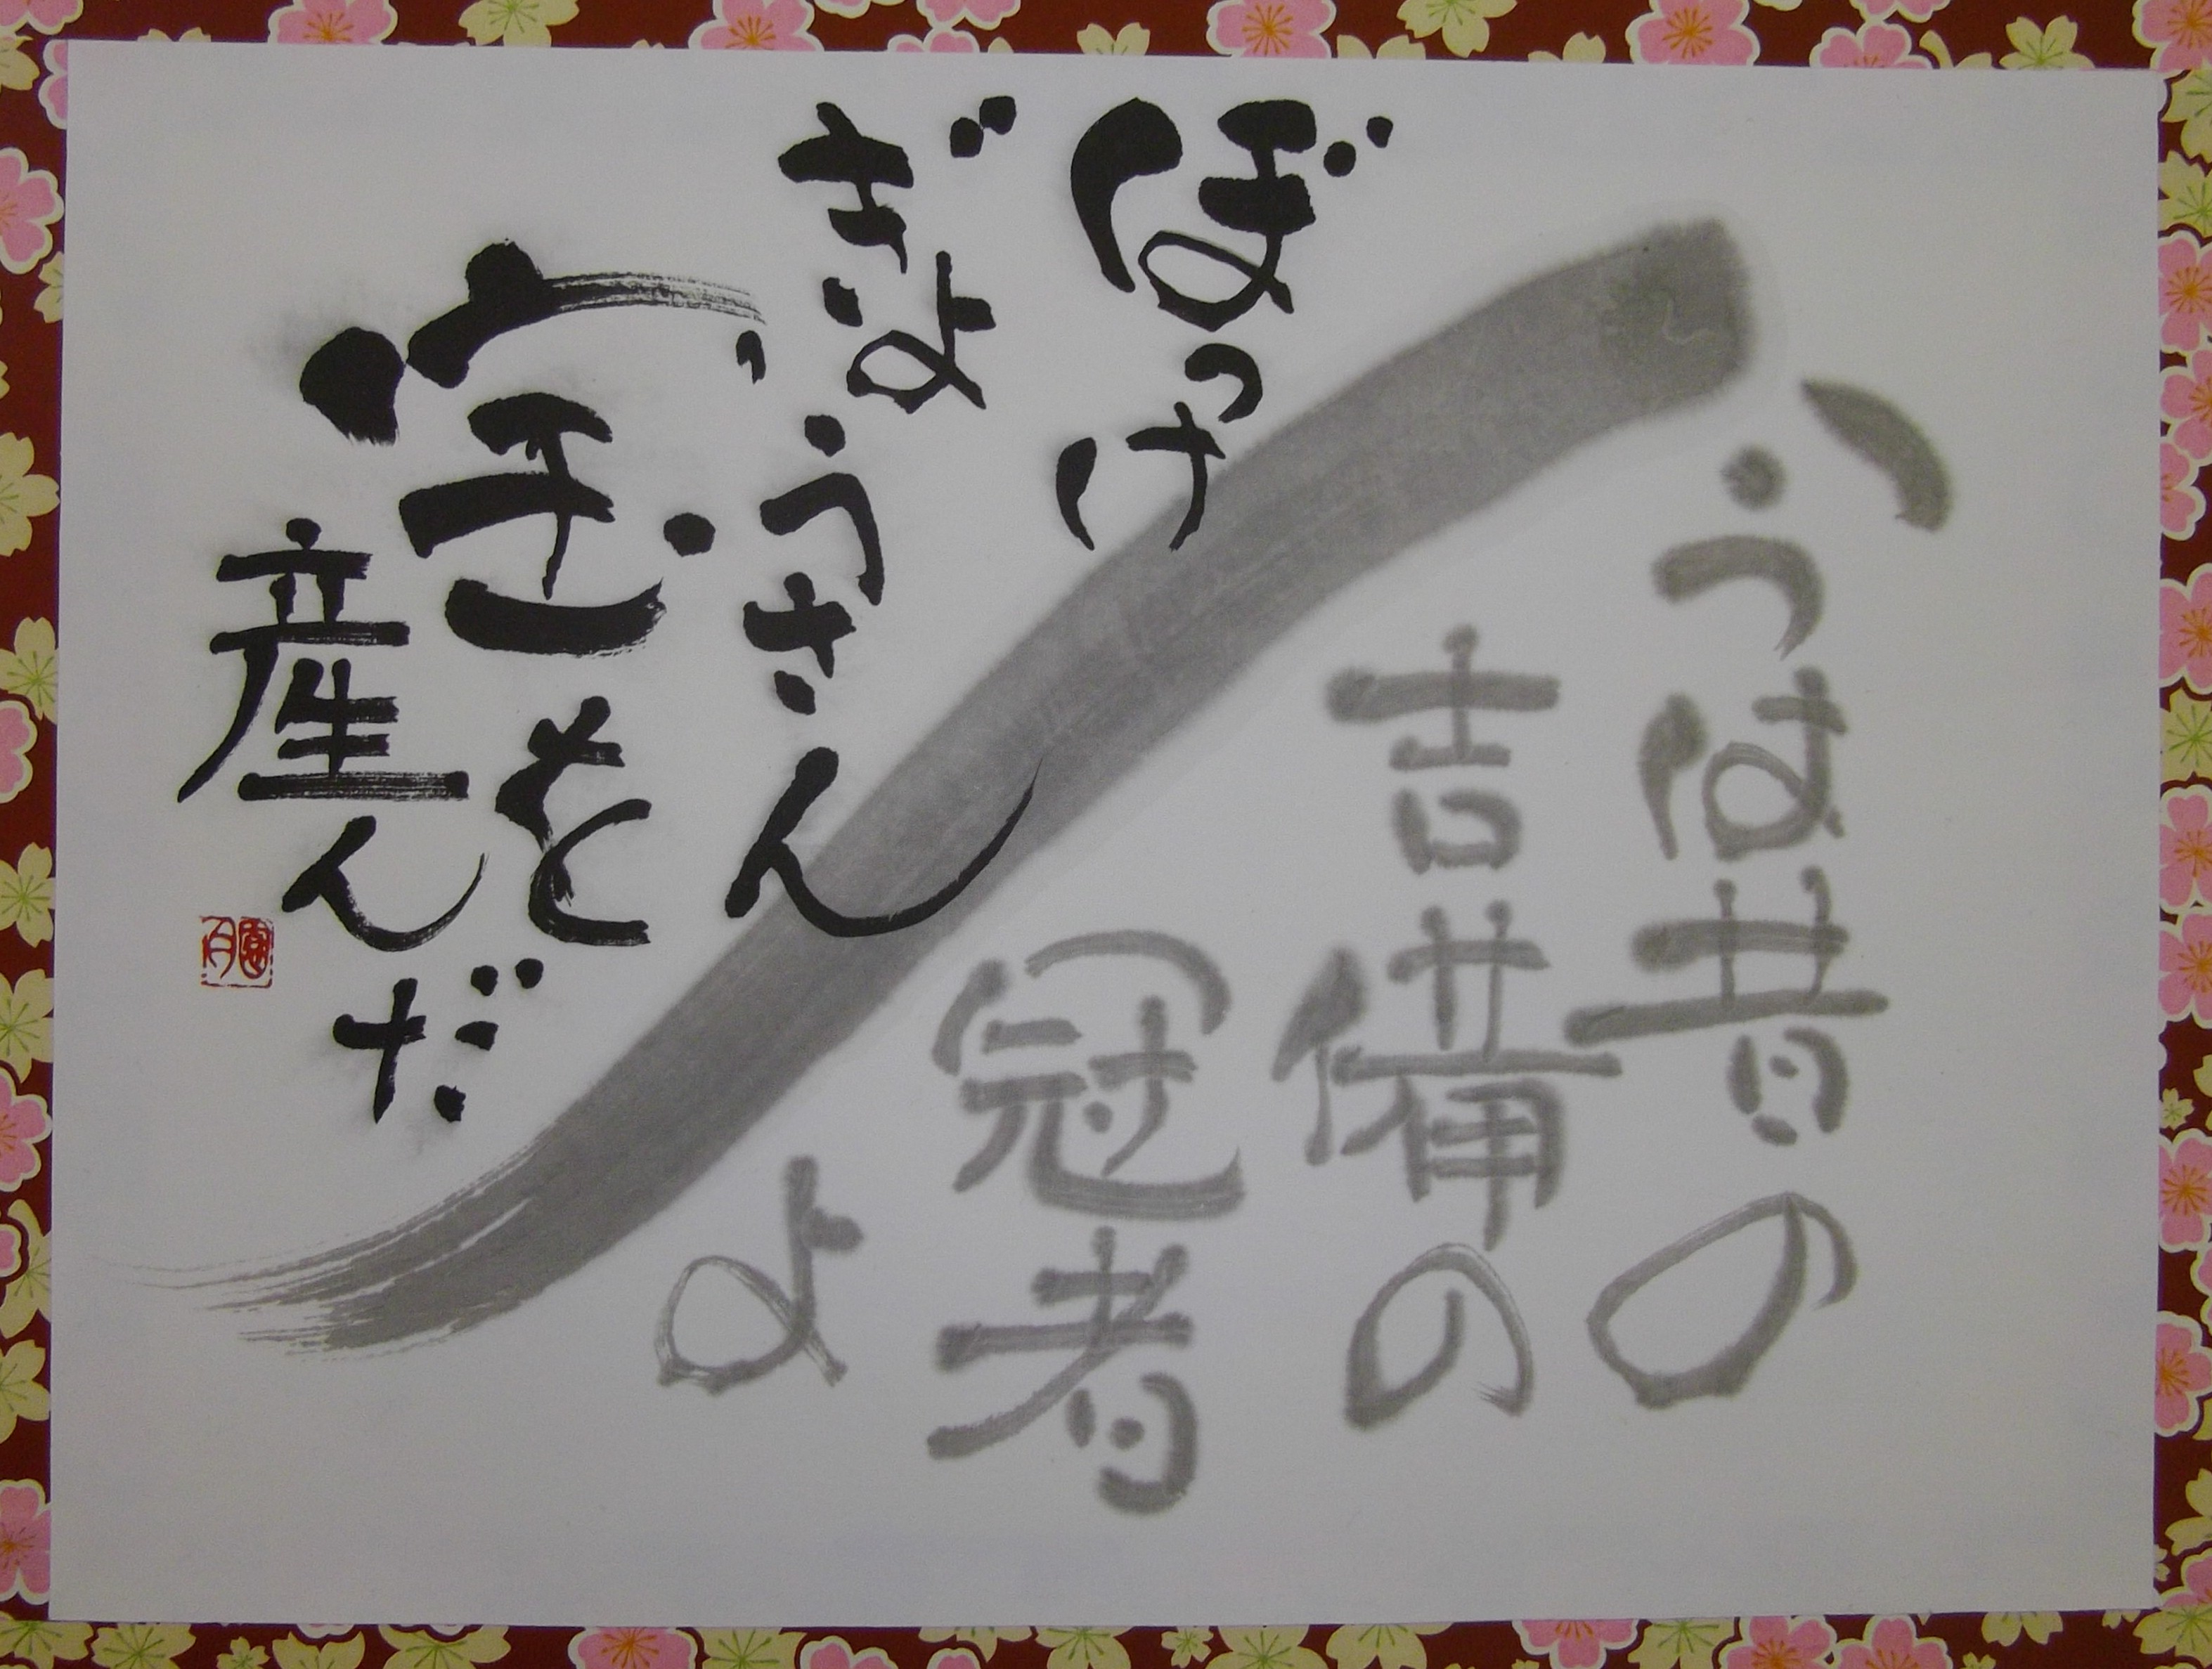 今は昔の
吉備の
冠者
よ
ぼっけ
ぎょうさん
宝を
産んだ